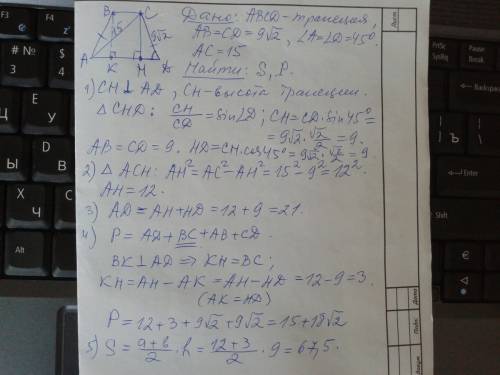 B C
15 9√2
A K H D
Дано: ABCD – трапеция,
AB=CD=9√2, ∠A=∠D=45°.
AC=15
Найти: S, P.
1) CH⊥AD, CH – высота трапеции.
△CHD: CH/CD = sin∠D; CH=CD·sin45°=
=9√2·√2/2=9.
AB=CD=9. HD=CH·cos45°=9√2·√2/2=9.
2) △ACH: AH²=AC²–AH²=15²–9²=12²
AH=12.
3) AD=AH+HD=12+9=21.
4) P=AD+BC+AB+CD.
BK⊥AD ⇒ KH=BC;
KH=AH–AK=AH–HD=12–9=3.
(AK=HD)
P=12+3+9√2+9√2=15+18√2
5) S=a+b/2·h=12+3/2·9=67,5.
Лист
Дата
Подп.
PgUp
PgDn
Enter
Backspace